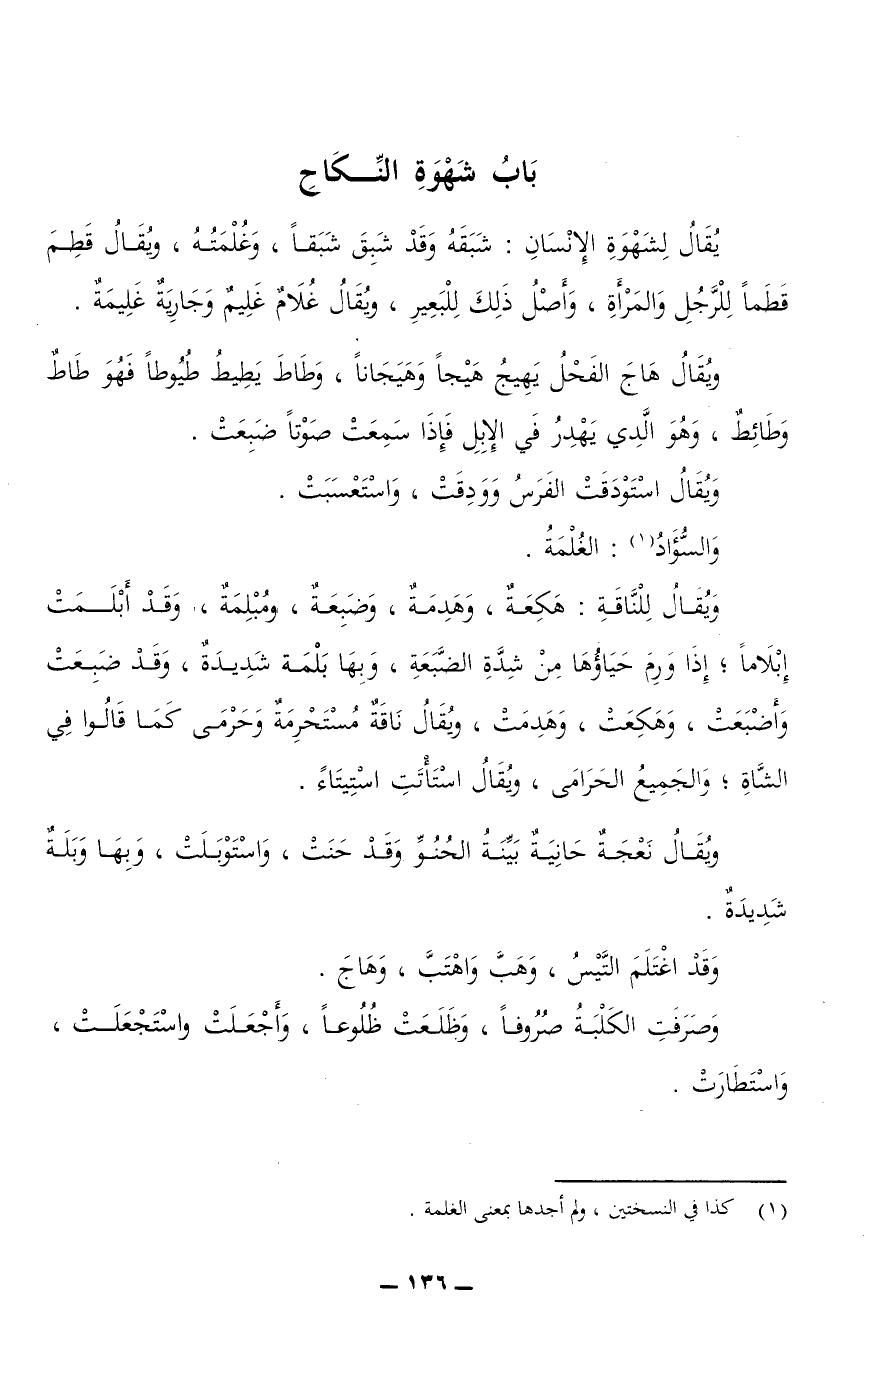 بَابُ شَهْوَةِ النِّـكَاحِ
يُقَالُ لِشَهْوَةِ الإِنْسَانِ : شَبَقَهُ وَقَدْ شَبِقَ شَبَقاً ، وَغُلْمَتُهُ ، ويُقَالُ قَطِمَ
قَطَماً لِلْرَّجُلِ وَالمَرْأَةِ ، وَأَصْلُ ذَلِكَ لِلْبَعِيرِ ، ويُقَالُ غُلَامٌ غَلِيمٌ وَجَارِيَةٌ غَلِيمَةٌ .
ويُقَالُ هَاجَ الفَحْلُ يَهِيجُ هَيْجاً وَهَيَجَاناً ، وَطَاطَ يَطِيطُ طُيُوطاً فَهُوَ طَاطٌ
وَطَائِطٌ ، وَهُوَ الَّذِي يَهْدِرُ فَي الإِبِلِ فَإِذَا سَمِعَتْ صَوْتاً ضَبِعَتْ .
وَيُقَالُ اسْتَوْدَقَتْ الفَرَسُ وَوَدِقَتْ ، وَاسْتَعْسَبَتْ .
وَالسُّؤَادُ(١) : الغُلْمَةُ .
وَيُقَالُ لِلْنَّاقَةِ : هَكِعَةٌ ، وَهَدِمَةٌ ، وَضَبِعَةٌ ، ومُبْلِمَةٌ ، وَقَدْ أَبْلَمَتْ
إِبْلَاماً ؛ إِذَا وَرِمَ حَيَاؤُهَا مِنْ شِدَّةِ الضَّبَعَةِ ، وَبِهَا بَلْمَة شَدِيدَةٌ ، وَقَدْ ضَبِعَتْ
وَأَضْبَعَتْ ، وَهَكِعَتْ ، وَهَدِمَتْ ، ويُقَالُ نَاقَةٌ مُسْتَحْرِمَةٌ وَحَرْمَى كَمَا قَالُوا فِي
الشَّاةِ ؛ وَالجَمِيعُ الحَرَامَى ، ويُقَالُ اسْتَأْتَتِ اسْتِيتَاءً .
ويُقَالُ نَعْجَةٌ حَانِيَةٌ بَيِّنَةُ الحُنُوِّ وَقَدْ حَنَتْ ، وَاسْتَوْبَلَتْ ، وَبِهَا وَبَلَةٌ
شَدِيدَةٌ .
وَقَدْ اغْتَلَمَ التَّيْسُ ، وَهَبَّ وَاهْتَبَّ ، وَهَاجَ .
وَصَرَفَتِ الكَلْبَةُ صُرُوفاً ، وَظَلَعَتْ ظُلُوعاً ، وَأَجْعَلَتْ واسْتَجْعَلَتْ ،
وَاسْتَطَارَتْ .
(١) كذا في النسختين ، ولم أجدها بمعنى الغلمة .
ـ ١٣٦ ـ